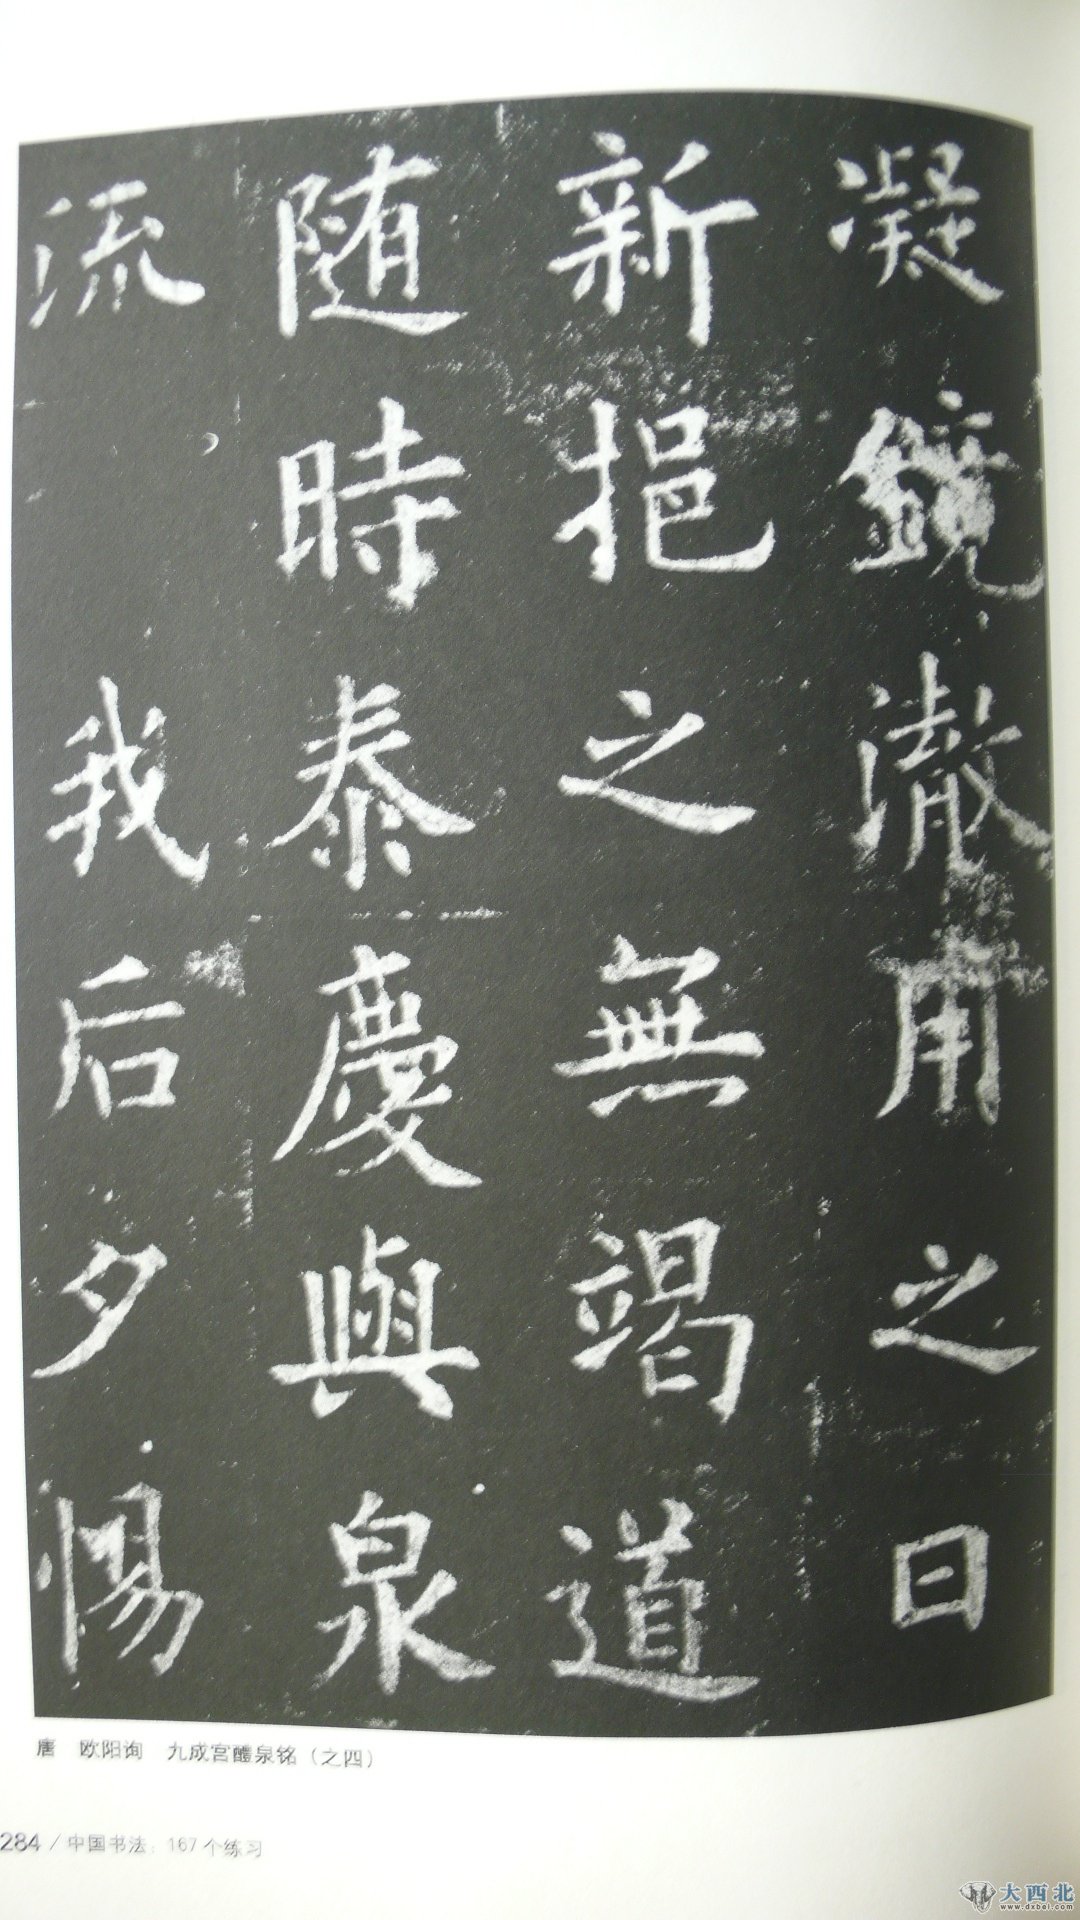 凝鏡澈用之日
新挹之無竭道
随時泰慶與泉
流 我后夕惕
唐 欧阳询 九成宫醴泉铭（之四）
284 / 中国书法：167个练习
大西北
www.dxbei.com